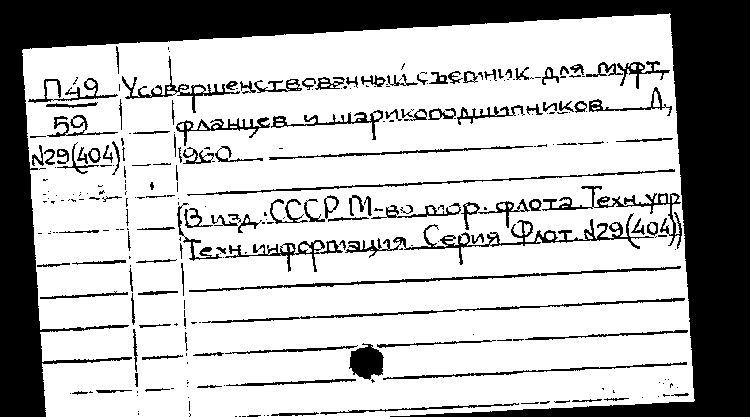 П49 Усовершенствованный съемник для муфт,
59 фланцев и шарикоподшипников. Л.,
№29(404) 1960
(В изд.: СССР М-во мор. флота. Техн. упр
Техн. информация. Серия Флот. №29(404))